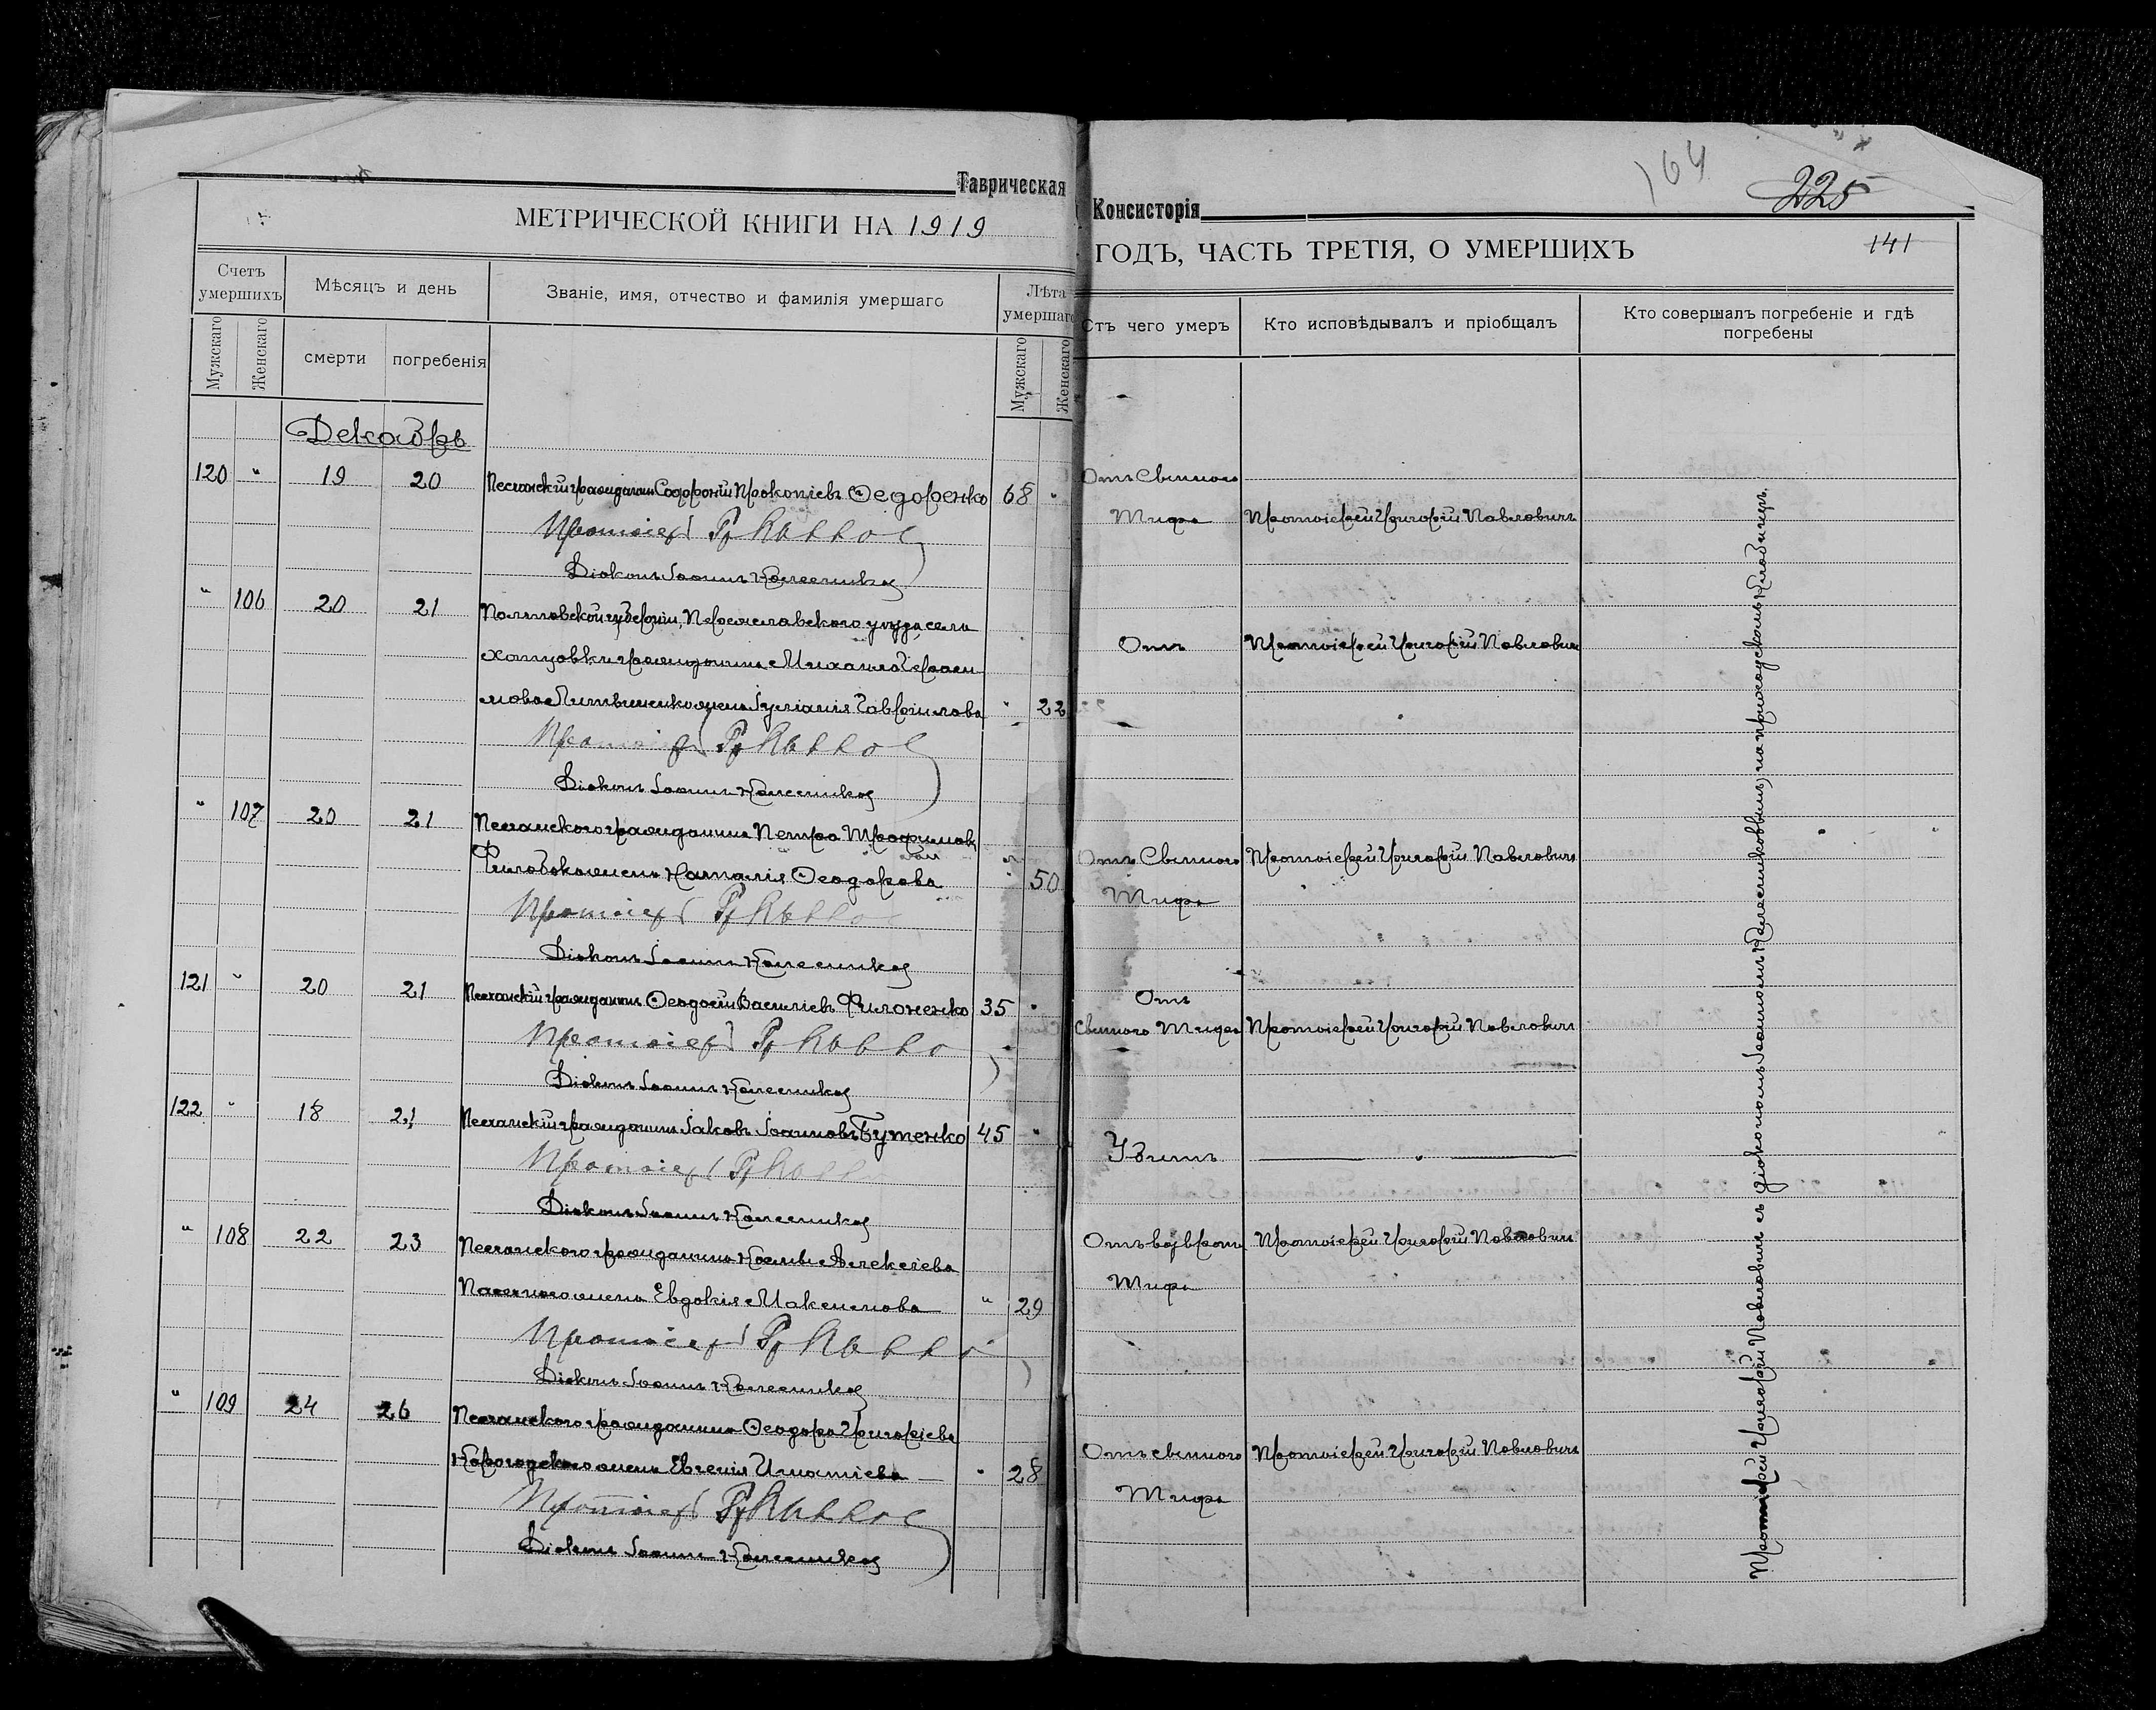 Таврическая Консисторія
164
225
МЕТРИЧЕСКОЙ КНИГИ НА 1919 ГОДЪ, ЧАСТЬ ТРЕТІЯ, О УМЕРШИХЪ
141
Счетъ умершихъ
Мѣсяцъ и день
Званіе, имя, отчество и фамилія умершаго
Лѣта умершаго
Отъ чего умеръ
Кто исповѣдывалъ и пріобщалъ
Кто совершалъ погребеніе и гдѣ погребены
Мужскаго
Женскаго
смерти
погребенія
Мужскаго
Женскаго
Декабрь
120 " 19 20 Песчанскій гражданинъ Софроній Прокопіевъ Федоренко 68 " Отъ Сыпного
Тифа Протоіерей Григорій Павловичъ
Протоіерей Гр
Діаконъ Іоаннъ Колесниковъ
" 106 20 21 Полтавской губерніи, Переяславского уѣзда села
Отъ Протоіерей Григорій Павловичъ
гражданина Михаила Гераси
мова Литвиненко жена Іуліанія Гавріилова " 22
Протоіерей Гр
Діаконъ Іоаннъ Колесниковъ
" 107 20 21 Песчанского гражданина Петра Трофимова
Отъ Сыпного Протоіерей Григорій Павловичъ
жена Наталія Феодорова " 50
Тифа
Протоіерей Гр
Діаконъ Іоаннъ Колесниковъ
121 " 20 21 Песчанскій гражданинъ Феодосій Василіевъ Филоненко 35 " Отъ
Сыпного Тифа Протоіерей Григорій Павловичъ
Протоіерей Гр
Діаконъ Іоаннъ Колесниковъ
122 " 18 21 Песчанскій гражданинъ Іаковъ Іоанновъ Бутенко 45 "
Убитъ "
Протоіерей Гр
Діаконъ Іоаннъ Колесниковъ
" 108 22 23 Песчанского гражданина Алексіева
Отъ возврат Протоіерей Григорій Павловичъ
жена Евдокія Максимова " 29
Тифа
Протоіерей Гр
Діаконъ Іоаннъ Колесниковъ
" 109 24 26 Песчанского гражданина Феодора Григоріева
Отъ сыпного Протоіерей Григорій Павловичъ
жена Евгенія Игнатіева " 28
Тифа
Протоіерей Гр
Діаконъ Іоаннъ Колесниковъ
Протоіерей Григорій Павловичъ съ діакономъ Іоанномъ Колесниковымъ, на приходскомъ кладбищѣ.